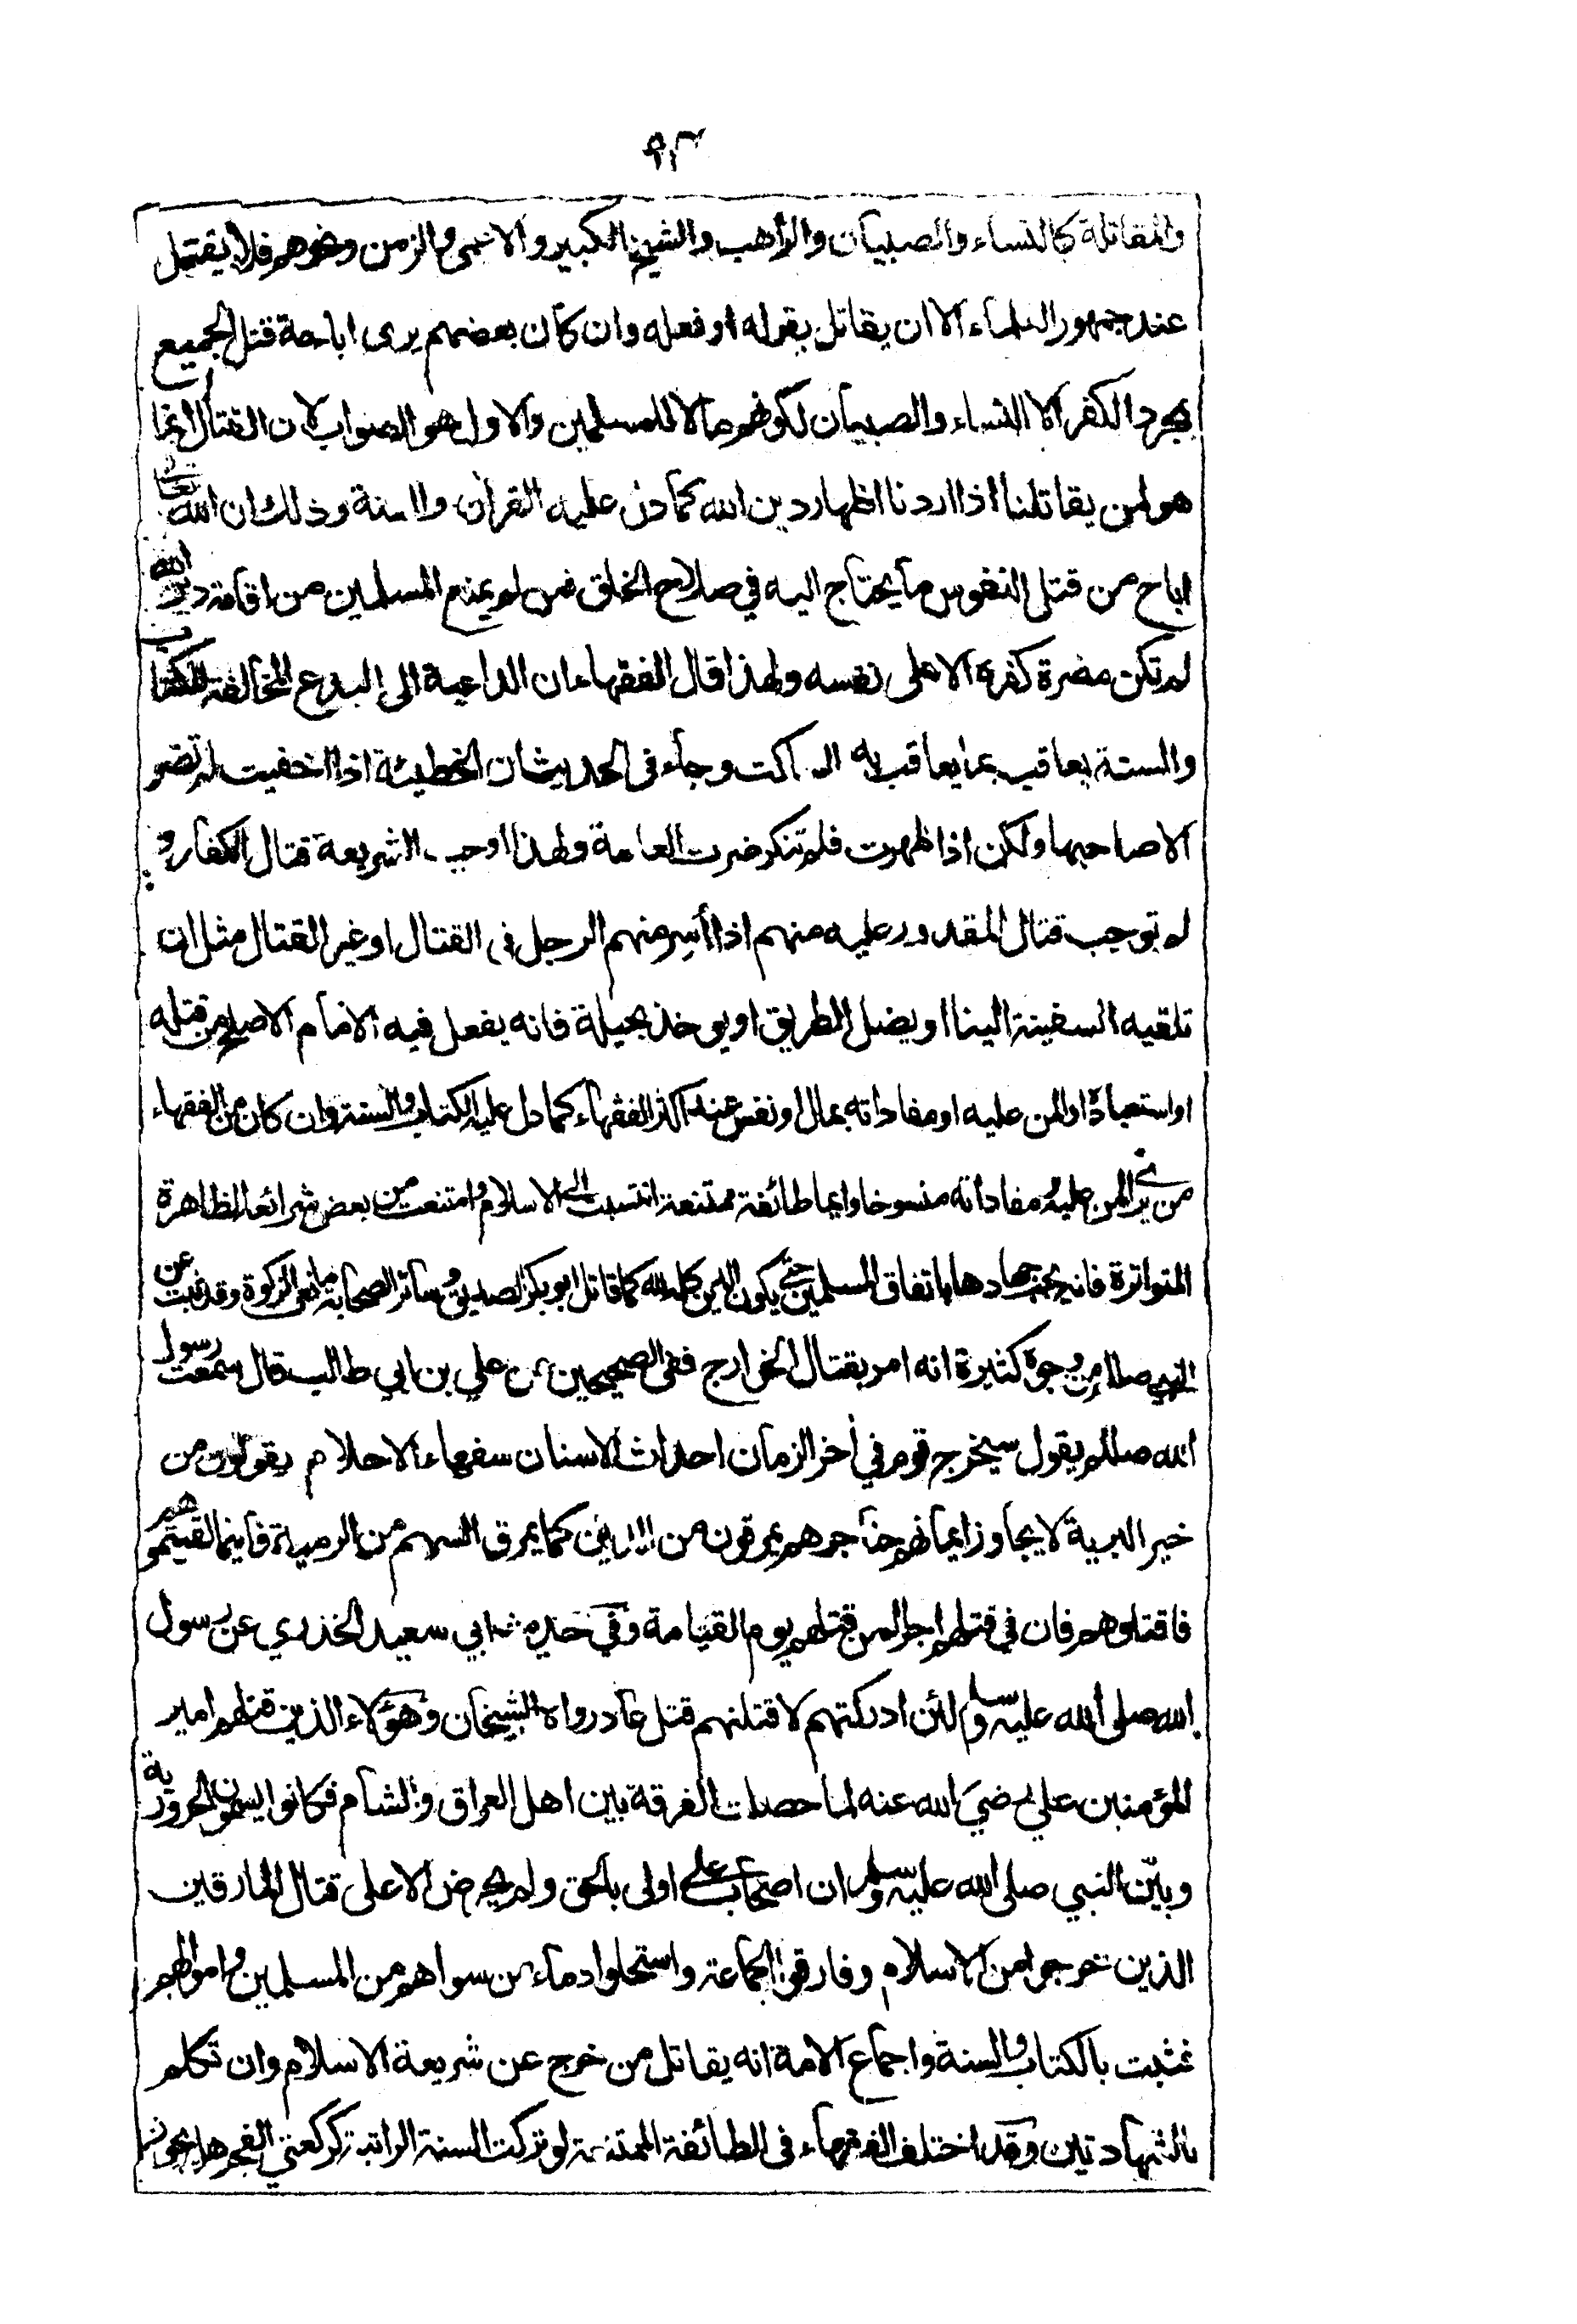 ٩٣
والمقاتلة كالنساء والصبيان والراهب والشيخ الكبير والاعمى والزمن ونحوهم فلا يقتل
عند جمهور العلماء الا ان يقاتل بقوله او فعله وان كان بعضهم يرى اباحة قتل الجميع
بمجرد الكفر الا النساء والصبيان لكونهم مالا للمسلمين والاول هو الصواب لان القتال انما
هو لمن يقاتلنا اذا اردنا اظهار دين الله كما دل عليه القرآن والسنة وذلك ان الله تعالى
اباح من قتل النفوس ما يحتاج اليه في صلاح الخلق فمن لم يمنع المسلمين من اقامة دين الله
لم تكن مضرة كفره الا على نفسه ولهذا قال الفقهاء ان الداعية الى البدع المخالفة للكتاب
والسنة يعاقب بما يعاقب به الساكت وجاء في الحديث ان الخطيئة اذا اخفيت لم تضر
الا صاحبها ولكن اذا ظهرت فلم تنكر ضرت العامة ولهذا اوجب الشريعة قتال الكفار و
لم توجب قتال المقدور عليه منهم اذا أسر منهم الرجل في القتال او غير القتال مثل ان
تلقيه السفينة الينا او يضل الطريق او يوخذ بحيلة فانه يفعل فيه الامام الاصلح من قتله
او استعباده او المن عليه او مفاداته بمال او نفس عند اكثر الفقهاء كما دل عليه الكتاب والسنة وان كان من الفقهاء
من يرى المن عليه ومفاداته منسوخا وايما طائفة ممتنعة انتسبت الى الاسلام وامتنعت من بعض شرائعه الظاهرة
المتواترة فانه يجب جهادها باتفاق المسلمين حتى يكون الدين كله لله كما قاتل ابو بكر الصديق وسائر الصحابة مانعي الزكوة وقد ثبت عن
النبي صللم من وجوه كثيرة انه امر بقتال الخوارج ففي الصحيحين عن علي بن ابي طالب قال سمعت رسول
الله صللم يقول سيخرج قوم في أخر الزمان احداث الاسنان سفهاء الاحلام يقولون من
خير البرية لا يجاوز ايمانهم حناجرهم يمرقون من الدين كما يمرق السهم من الرمية فاينما لقيتموهم
فاقتلوهم فان في قتلهم اجرا لمن قتلهم يوم القيامة وفي حديث ابي سعيد الخذري عن رسول
الله صلى الله عليه وسلم لئن ادركتهم لاقتلنهم قتل عاد رواه الشيخان وهؤلاء الذين قتلهم امير
المؤمنين علي رضي الله عنه لما حصلت الفرقة بين اهل العراق والشام فكانوا يسمون الحرورية
وبيّن النبي صلى الله عليه وسلم ان اصحاب علي اولى بالحق ولم يحرض الا على قتال المارقين
الذين خرجوا من الاسلام وفارقوا الجماعة واستحلوا دماء من سواهم من المسلمين واموالهم
فثبت بالكتاب والسنة واجماع الامة انه يقاتل من خرج عن شريعة الاسلام وان تكلم
بالشهادتين وقد اختلف الفقهاء في الطائفة الممتنعة لو تركت السنة الراتبة كركعتي الفجر هل يجوز